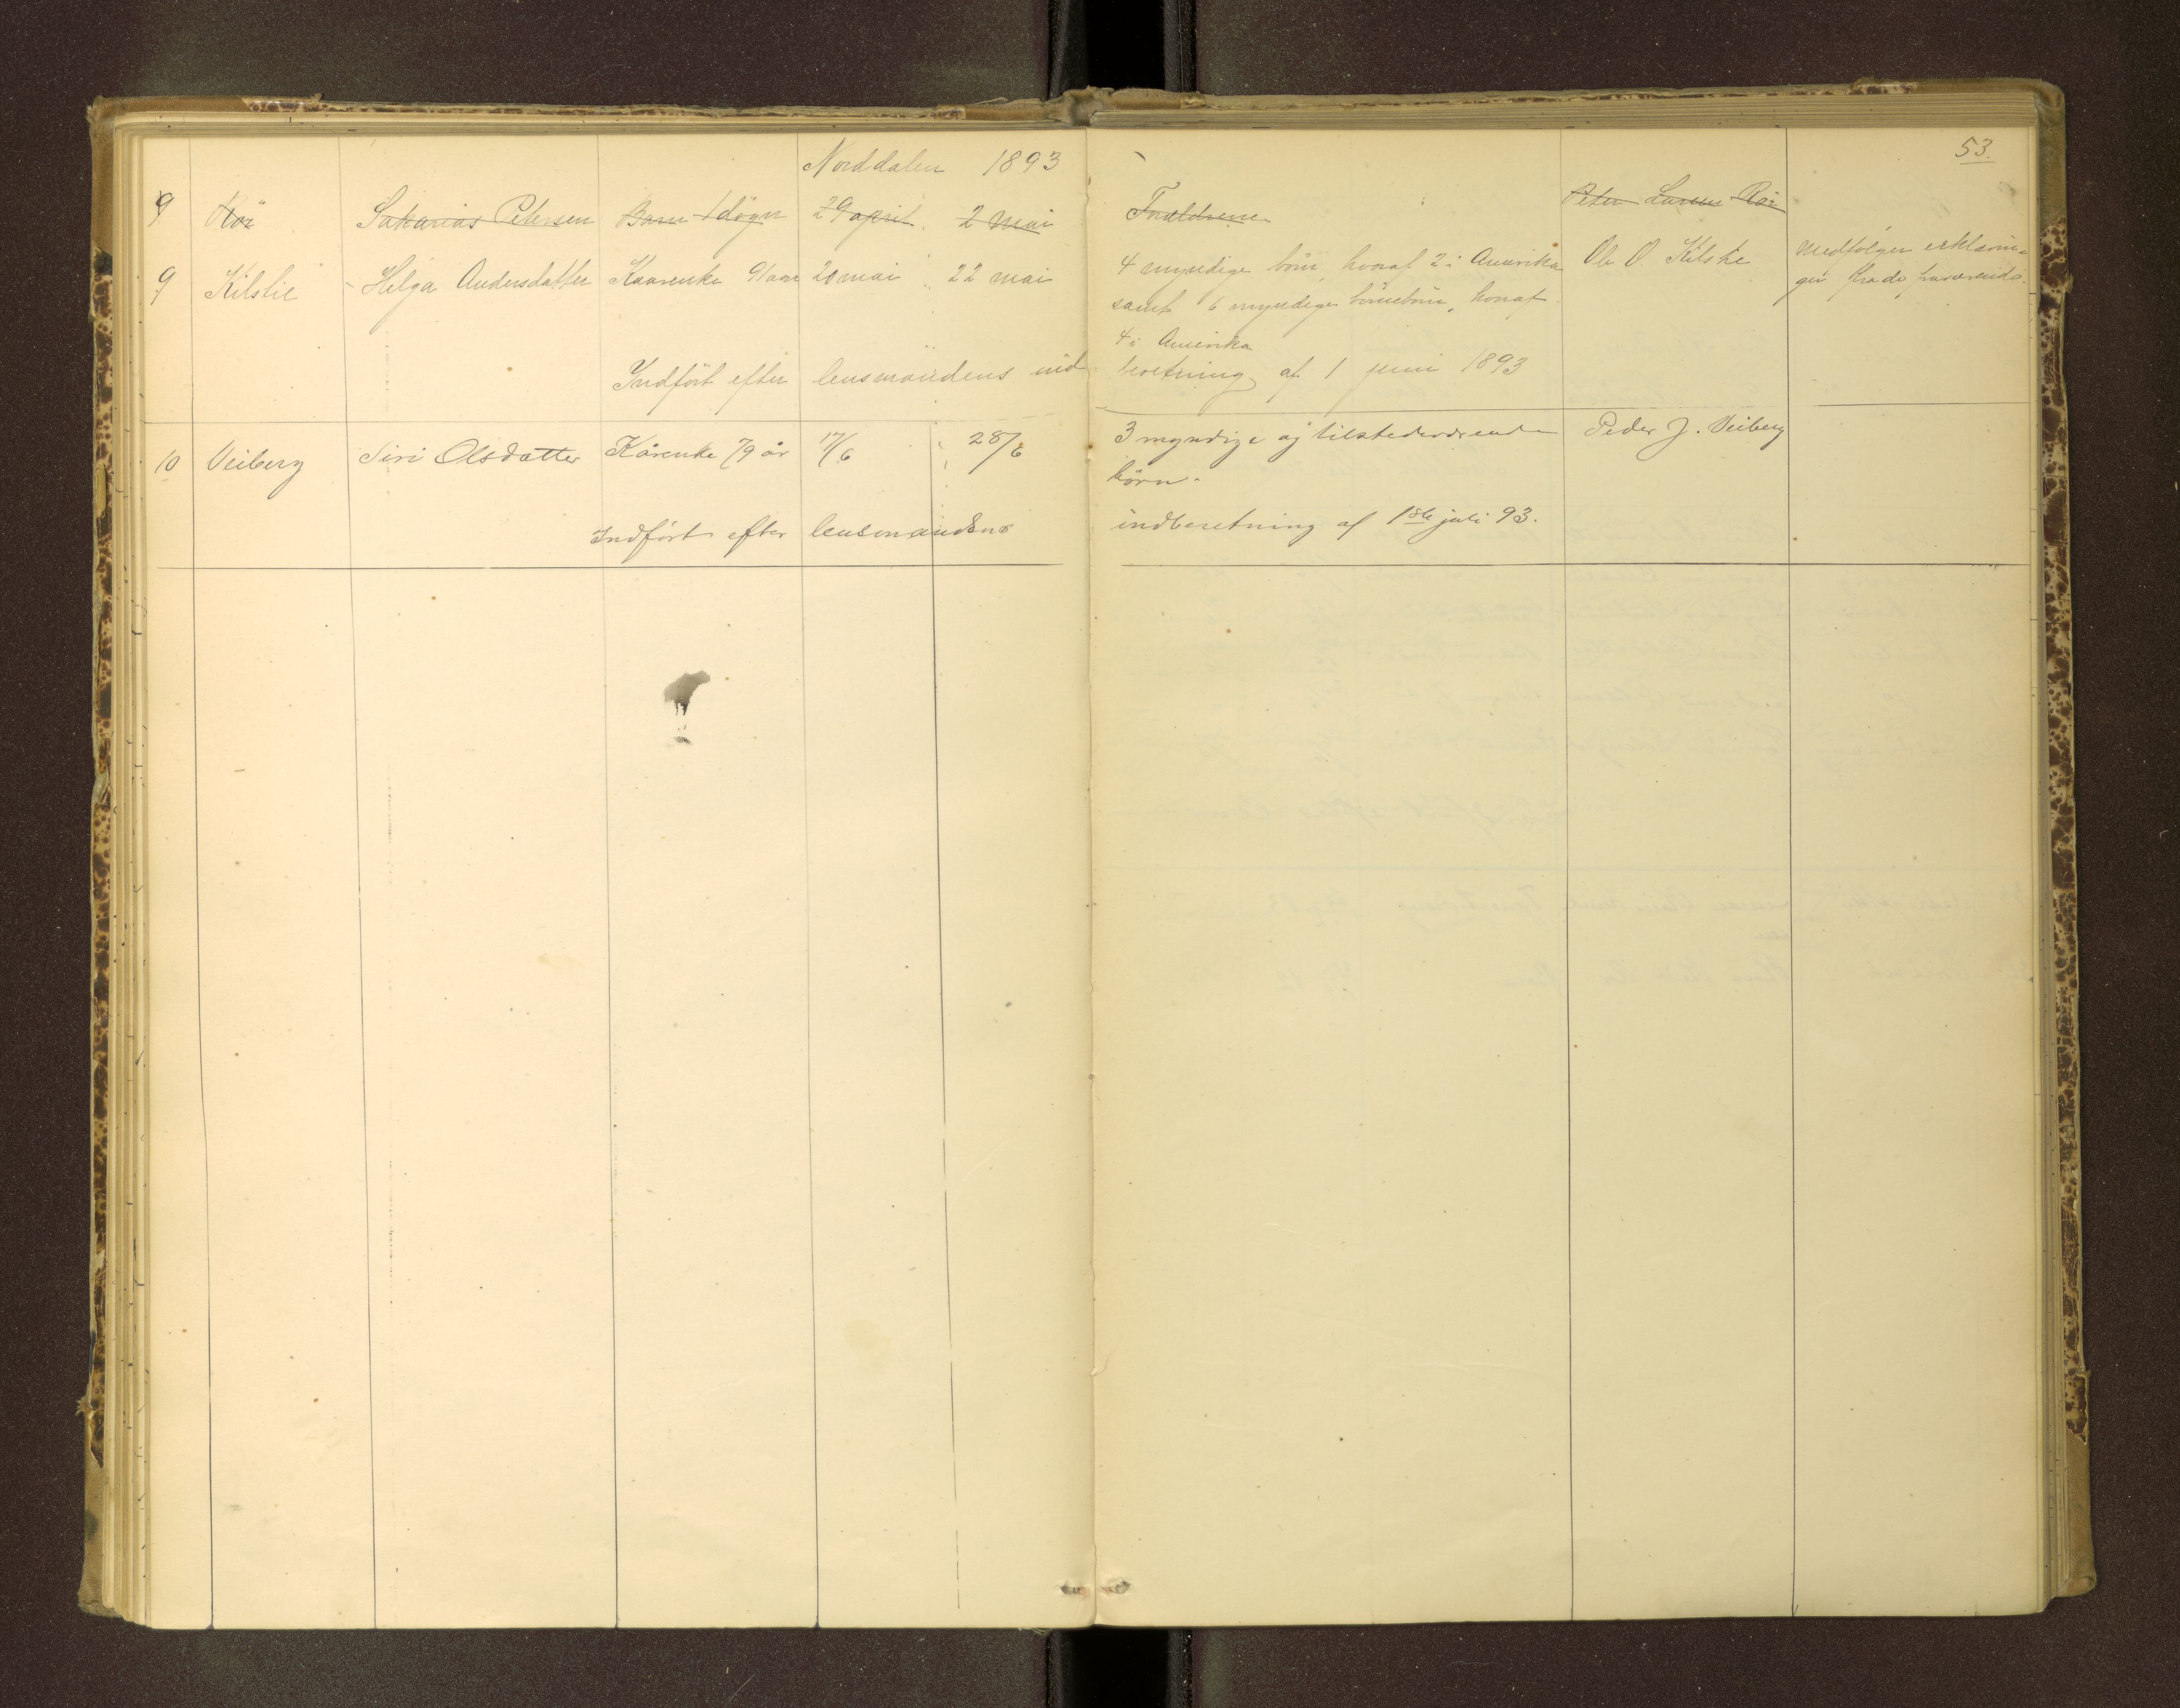 Norddalen 1893
53.
9 Rör Sakarias Petersen Barn 1 dögn 29 april 2 mai Forældrene Peter Larsen Rör
9 Kilstie Helga Andersdatter Kaarenke 91 aar 20 mai 22 mai 4 myndige börn, hvoraf 2 i Amerika Ole O. Kilstie Medfölger erklærin-
samt 6 myndige börnebörn, hvoraf ger fra de
4 i Amerika
Indfört efter lensmandens ind beretning af 1 juni 1893
10 Veiberg Siri Olsdatter Kårenke 79 år 17/6 28/6 3 myndige ej tilstedeværende Peder J. Veiberg
börn.
Indfört efter lensmandens indberetning af 1ste juli 93.